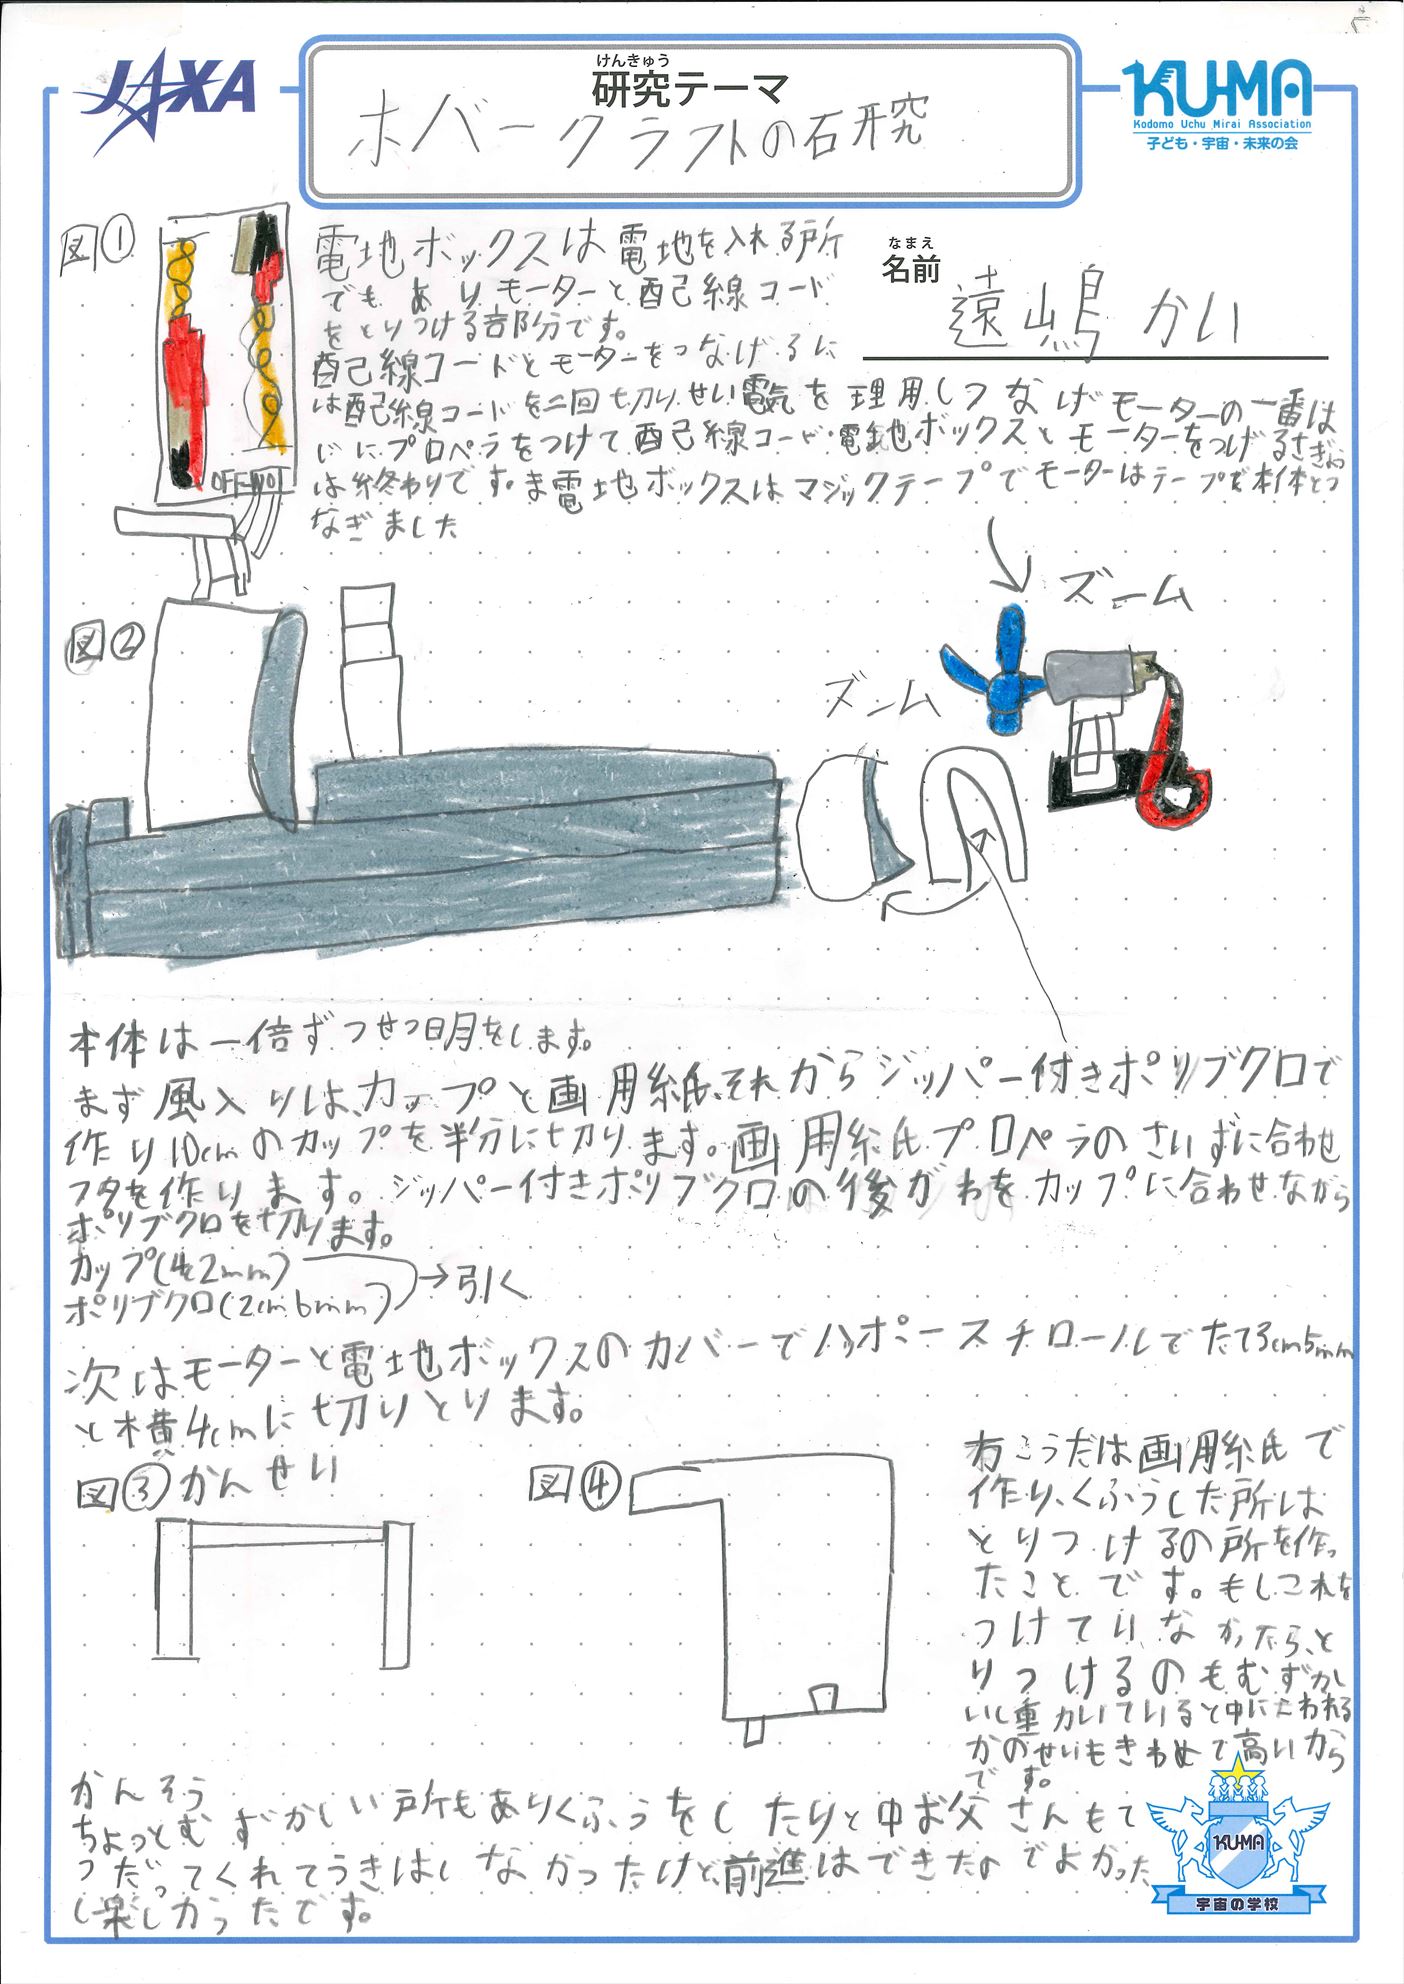 JAXA
けんきゅう
研究テーマ
ホバークラフトの研究
KU-MA
Kodomo Uchu Mirai Association
子ども・宇宙・未来の会
なまえ
名前
遠嶋かい
図①
電地ボックスは電地を入れる所
でもありモーターと配線コード
をとりつける部分です。
配線コードとモーターをつなげるに
は配線コードを二回切りせい電気を理用しつなげモーターの一番は
じにプロペラをつけて配線コード・電地ボックスとモーターをつげるさぎょ
は終わりです。ま電地ボックスはマジックテープでモーターはテープで本体とつ
なぎました
OFF
図②
ズーム
ズーム
本体は一倍ずつせつ明をします。
まず風入りは、カップと画用紙、それからジッパー付きポリブクロで
作り10cmのカップを半分に切ります。画用紙プロペラのさいずに合わせ
フタを作ります。ジッパー付きポリブクロの後がわをカップに合わせながら
ポリブクロを切ります。
カップ(42mm)
ポリブクロ(2cm6mm)
→引く
次はモーターと電地ボックスのカバーでハッポースチロールでたて3cm5mm
と横4cmに切りとります。
図③かんせい
図④
有こうだは画用紙で
作り、くふうした所は
とりつけるの所を作っ
たことです。もしこれを
つけていなかったら、と
りつけるのもむずかし
いし重かいていると中にたわれる
かのせいもきわめて高いから
です。
かんそう
ちょっとむずかしい所もありくふうをしたりと中お父さんもて
つだってくれてうきはしなかったけど前進はできたのでよかった
し楽しかったです。
KU-MA
宇宙の学校